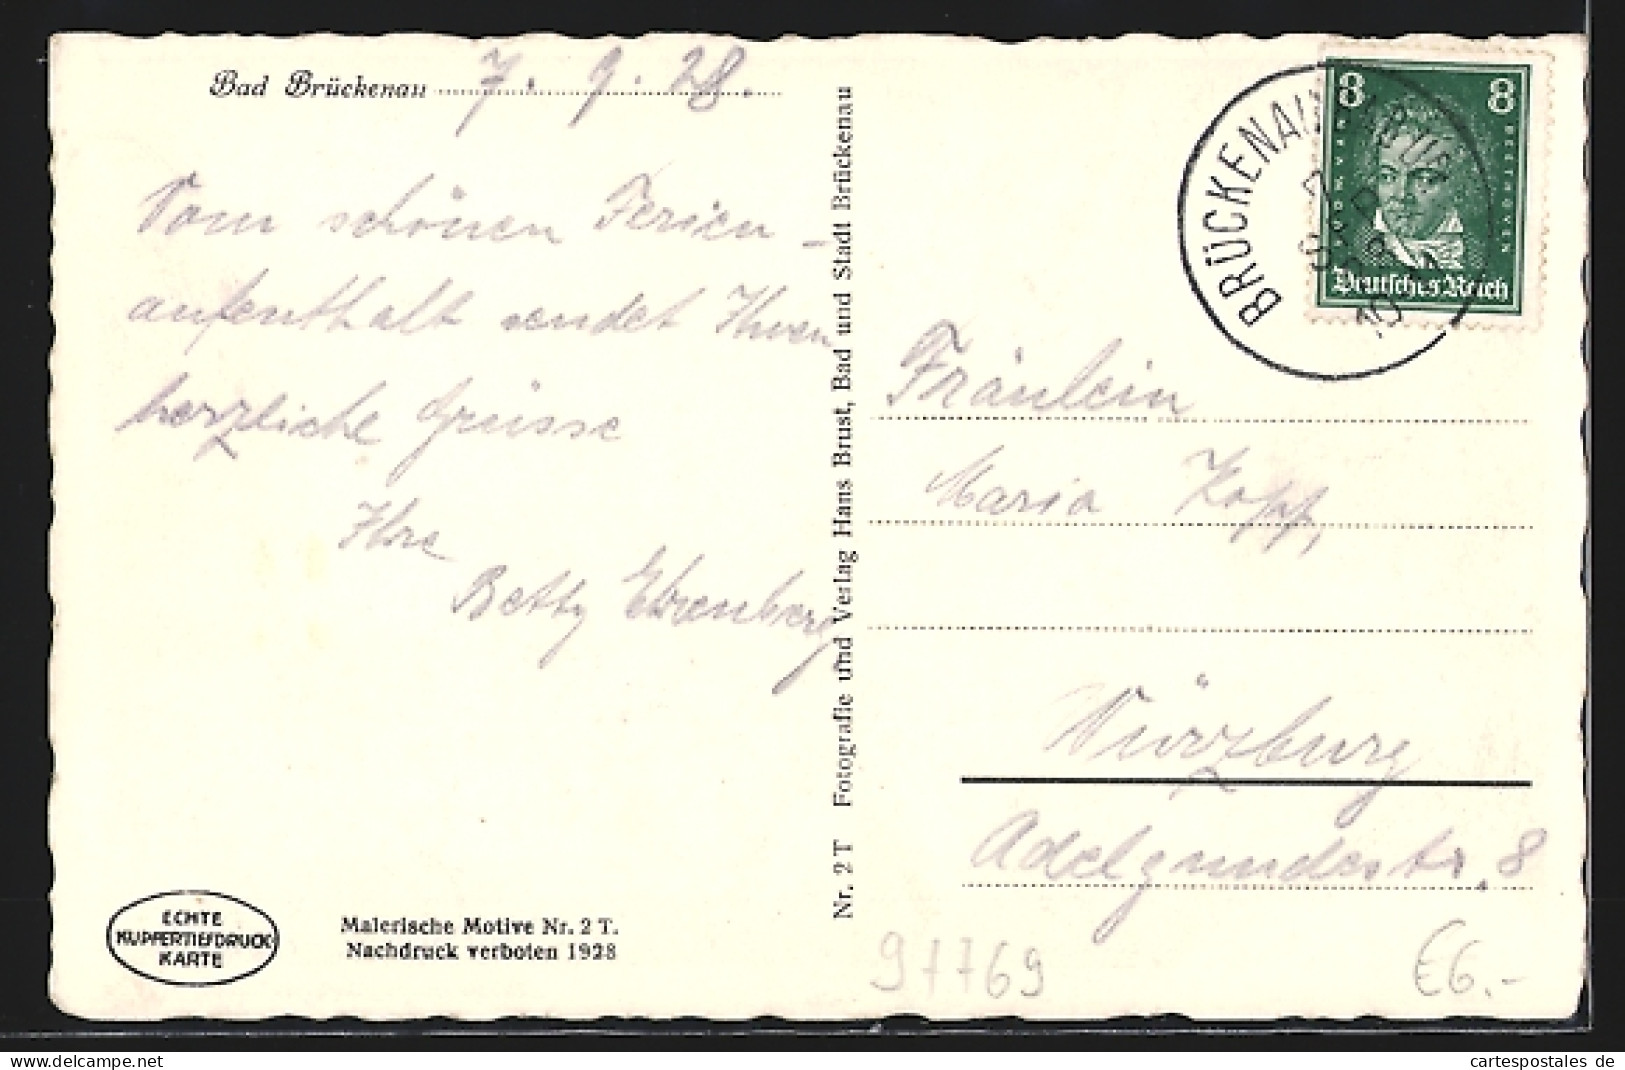 Bad Brückenau 7. 9. 28.
Vom schönen Ferien-
aufenthalt sendet Ihnen
herzliche Grüsse
Ihre
Betty Ehrenberg
ECHTE
KUPFERTIEFDRUCK
KARTE
Malerische Motive Nr. 2 T.
Nachdruck verboten 1928
Nr. 2 T Fotografie und Verlag Hans Brust, Bad und Stadt Brückenau
BRÜCKENAU
8 8
LUDWIG VAN BEETHOVEN
Deutsches Reich
Fräulein
Maria Kopp,
Würzburg
Adelgundestr. 8
97769
€6.-
cartespostales de